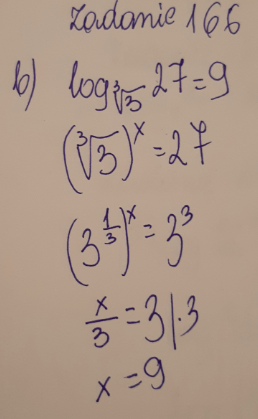 Zadanie 166
b) log_∛3 27 = 9
(∛3)^x = 27
(3^(1/3))^x = 3^3
x/3 = 3 | · 3
x = 9